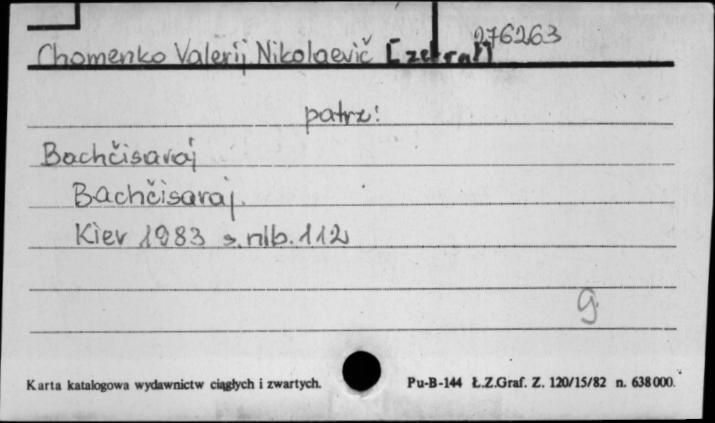 276263
Chomenko Valerij Nikolaevič [zebrał]
patrz:
Bachčisaraj
Bachčisaraj.
Kiev 1983 s. nlb. 112
g
Karta katalogowa wydawnictw ciągłych i zwartych.
Pu-B-144 Ł.Z.Graf. Z. 120/15/82 n. 638000.